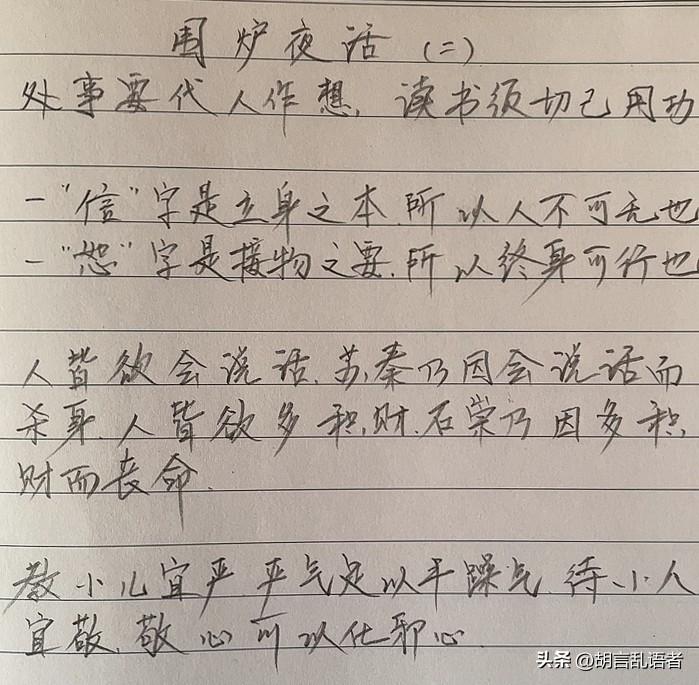 围炉夜话(二)
处事要代人作想,读书须切己用功
一"信"字是立身之本.所以人不可无也
一"恕"字是接物之要.所以终身可行也
人皆欲会说话.苏秦乃因会说话而
杀身.人皆欲多积财.石崇乃因多积
财而丧命.
教小儿宜严 严气足以平躁气.待小人
宜敬.敬心可以化邪心.
头条 @胡言乱语者